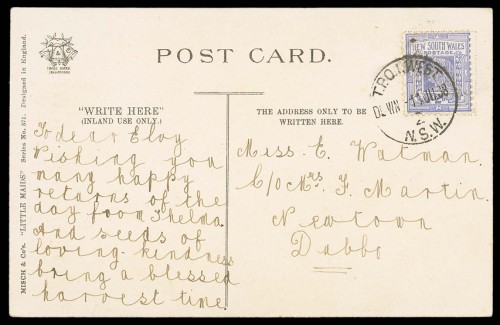 POST CARD.
TRADE MARK
NEW SOUTH WALES
POSTAGE
T.P.O.1.WEST
N.S.W.
2
MISCH & Co's. "LITTLE MAIDS" Series No. 571. Designed in England.
"WRITE HERE"
(INLAND USE ONLY.)
To dear Eloy
Wishing you
many happy
returns of the
day from Thelma.
And seeds of
loving-kindness
bring a blessed
harvest time
THE ADDRESS ONLY TO BE
WRITTEN HERE.
Miss. E. Watman.
C/o Mrs F. Martin.
Newtown
Dubbo